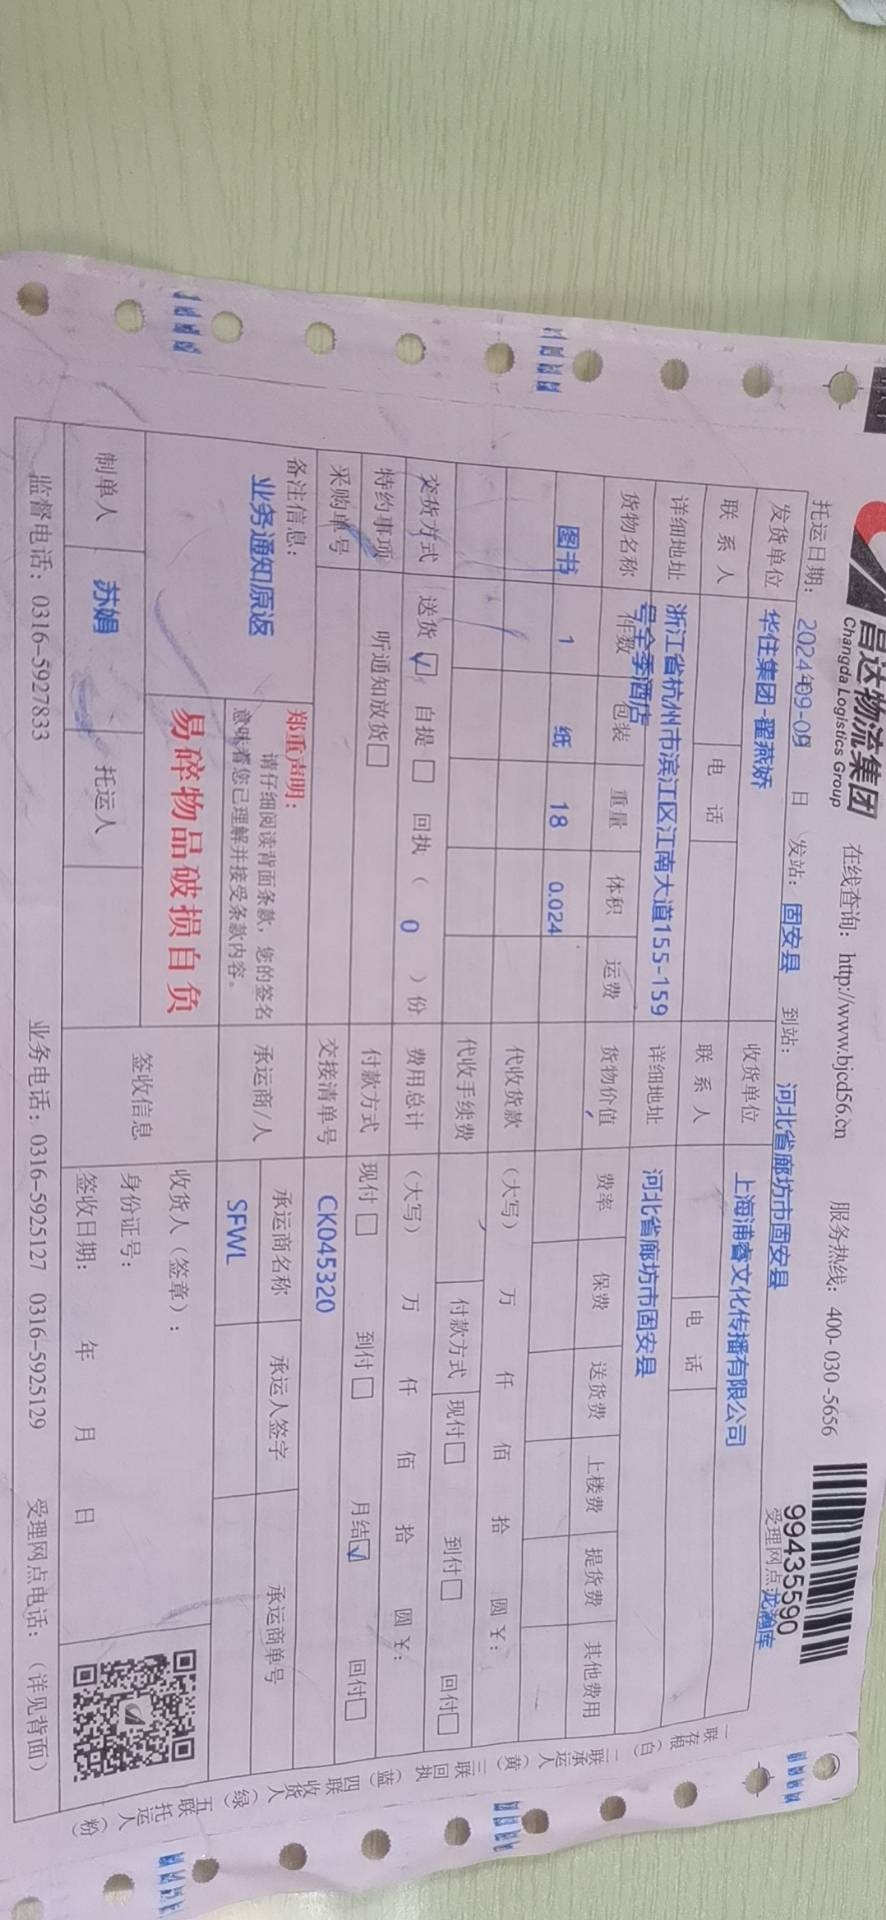 昌达物流集团
Changda Logistics Group
在线查询：http://www.bjcd56.cn 服务热线：400-030-5656
99435590
托运日期：2024年09-09 日 发站：固安县 到站：河北省廊坊市固安县 受理网点龙瀚库
发货单位 华住集团-翟燕娇 收货单位 上海浦睿文化传播有限公司
联系人 电话 联系人 电话
详细地址 浙江省杭州市滨江区江南大道155-159号全季酒店 详细地址 河北省廊坊市固安县
货物名称 件数 包装 重量 体积 运费 货物价值 费率 保费 送货费 上楼费 提货费 其他费用
图书 1 纸 18 0.024
代收货款 （大写） 万 仟 佰 拾 圆 ¥：
代收手续费 付款方式 现付□ 到付□ 回付□
交货方式 送货☑ 自提□ 回执（ 0 ）份 费用总计 （大写） 万 仟 佰 拾 圆 ¥：
特约事项 听通知放货□ 付款方式 现付□ 到付□ 月结☑ 回付□
采购单号 交接清单号 CK045320
备注信息：
业务通知原返
郑重声明：
请仔细阅读背面条款，您的签名
意味着您已理解并接受条款内容。
易碎物品破损自负
承运商/人 承运商名称 承运人签字 承运商单号
SFWL
签收信息 收货人（签章）：
身份证号：
签收日期： 年 月 日
制单人 苏娟 托运人
监督电话：0316-5927833 业务电话：0316-5925127 0316-5925129 受理网点电话：（详见背面）
一联存根（白） 二联承运人（黄） 三联回执（蓝） 四联收货人（绿） 五联托运人（粉）